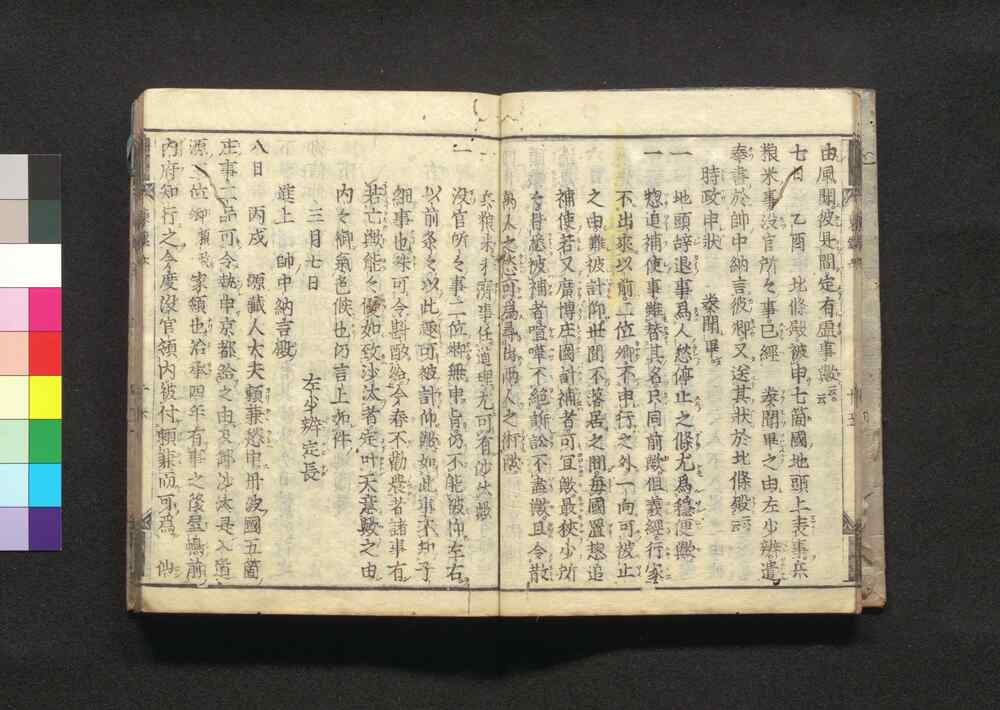 由風聞彼是間定有虚事歟云云
七日 乙酉 北條殿被申七箇國地頭上表事兵
粮米事没官所々事已經 奏聞畢之由左少辨遣
奉書於帥中納言彼卿又送其狀於北條殿云云
時政申狀 奏聞畢
一 地頭辞退事爲人愁停止之條尤爲穩便歟
一 惣追補使事雖替其名只同前歟但義經行家
不出來以前二位卿不申行之外一向可被止
之由難被計仰世間不落居之間毎國置惣追
補使若又廣博庄國計補者可宜歟最狹少所
々皆悉被補者喧嘩不絶訴訟不盡歟且令散
萬人之愁可爲尋出兩人之術歟
一 兵粮米未濟事任道理尤可有沙汰歟
一 没官所々事二位卿無申旨仍不能被仰左右
以前条々以此趣可被計仰歟如此事不知子
細事也殊可令斟酌給今春不勸農者諸事有
若亡歟能々優如致沙汰者定叶天意歟之由
内々御氣色候也仍言上如件
三月七日 左少辨定長
進上 帥中納言殿
八日 丙戌 源藏人大夫頼兼愁申丹波國五箇
庄事二品可令執申京都給之由及御沙汰是入道
源三位卿頼政家領也治承四年有事之後屋嶋前
内府知行之今度没官領内被付頼兼而可爲 仙